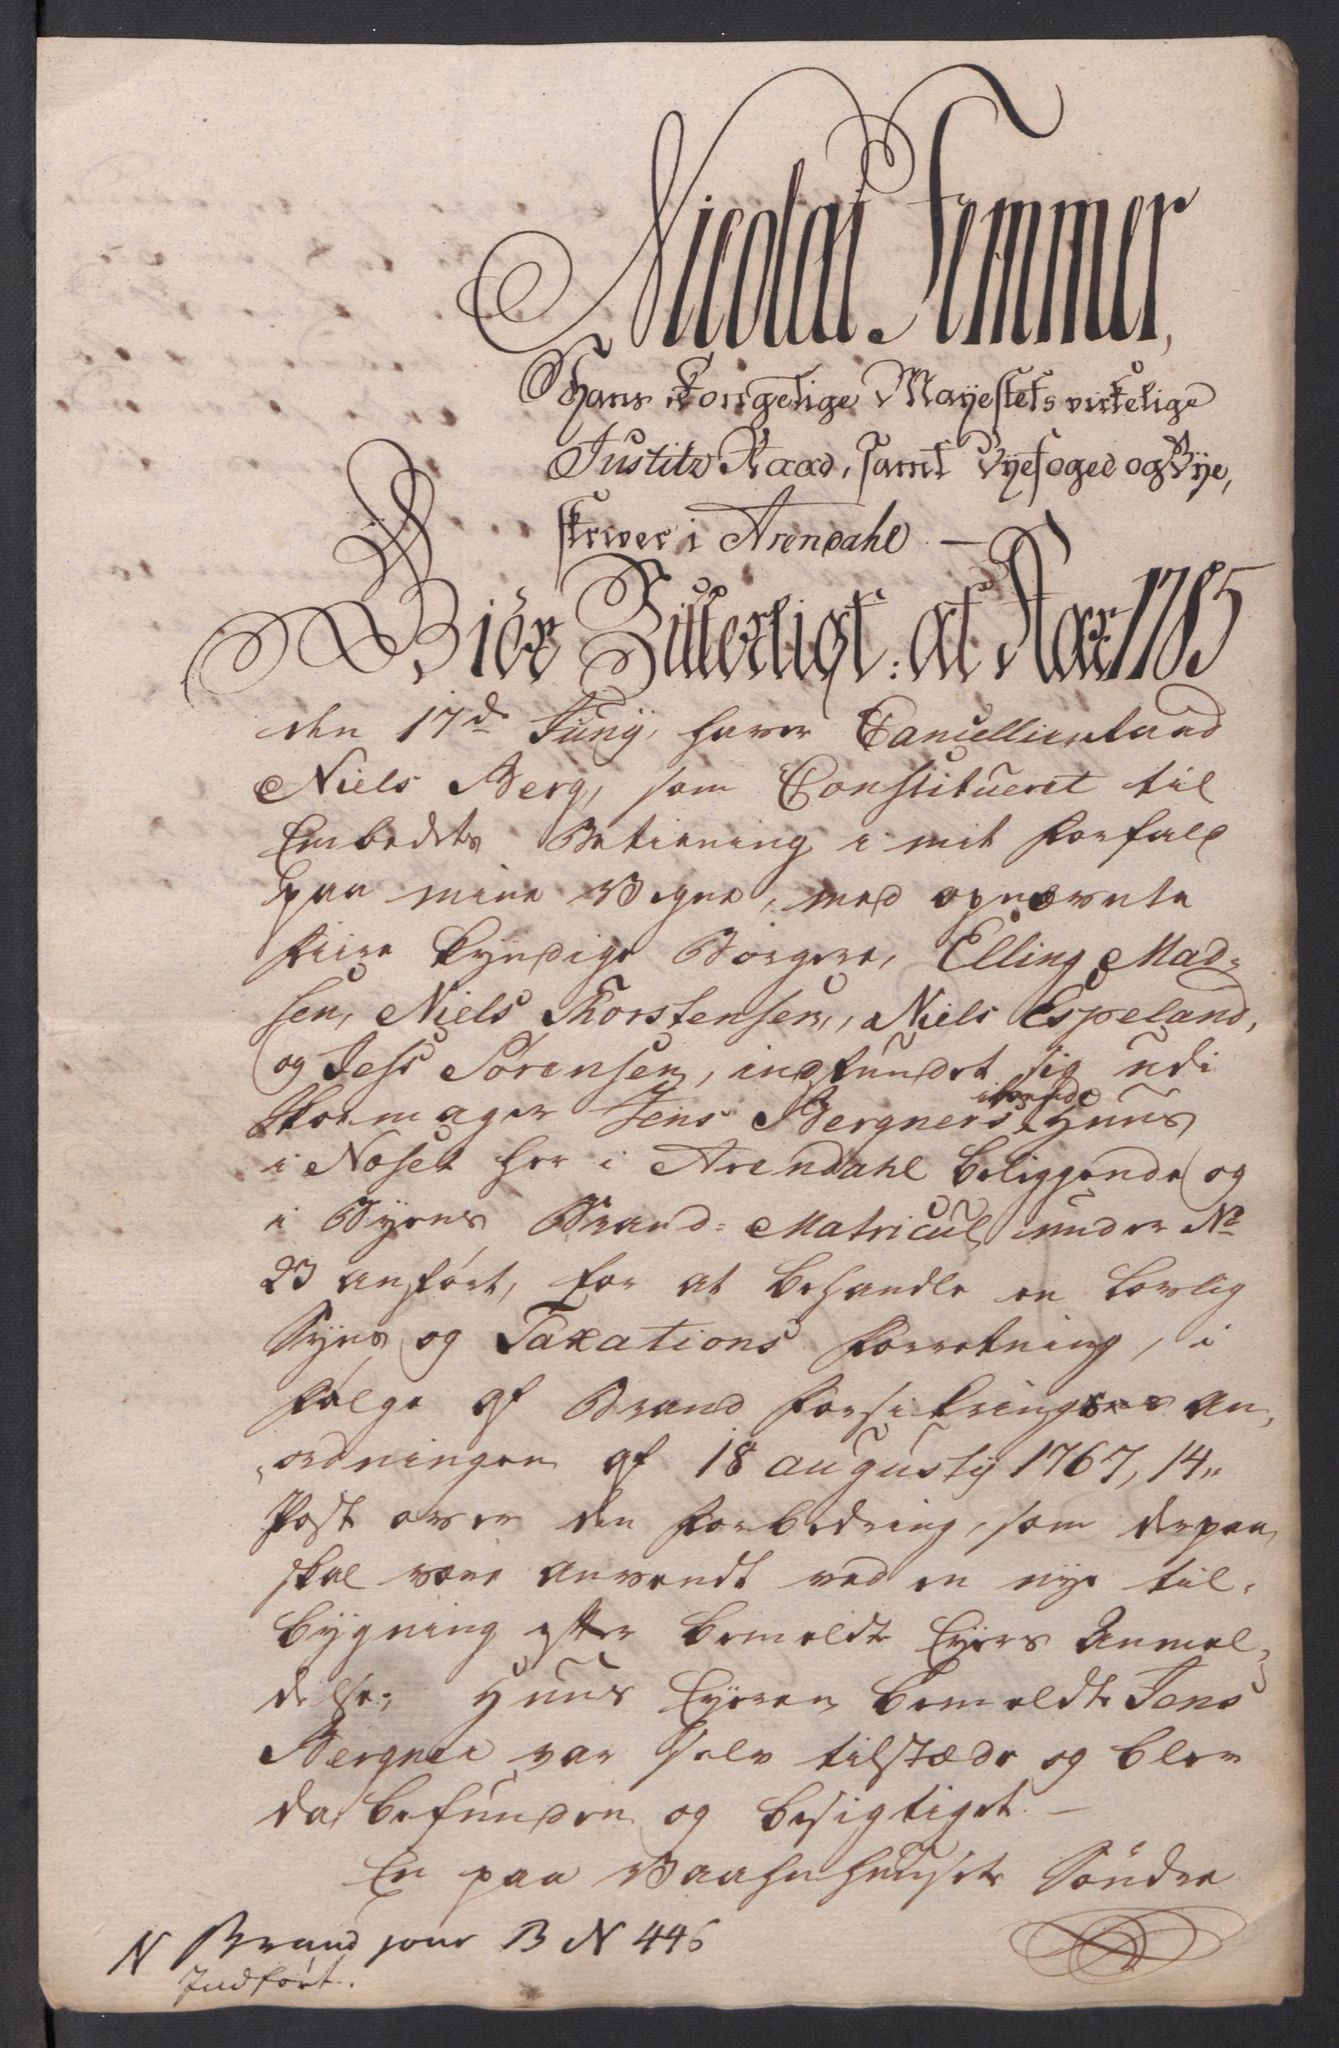 Nicolai Femmer,
Hans Kongelige Mayestets virkelige
Justitz Raad, samt Byefoged og Bye,
skriver i Arendahl —
Giör Vitterligt: at Aar 1785
den 17de Junÿ, haver Cancellieraad
Niels Berg, som Constitueret til
Embedets Betiening i mit Forfald
paa mine Vegne, med opnævnte
fiire kyndige Borgere, Elling Mad-
sen, Niels Thorstensen, Niels Espeland,
og Jess Sörensen, indfundet sig udi
Skomager Jens Bergners iboende Huus
i Noset her i Arendahl beliggende og
i Byens Brand-Matricul under No
23 anfört, for at behandle en lovlig
Syns og Taxations Forretning, i
Fölge af Brand Forsikrings An,
ordningen af 18 augustÿ 1767, 14,,
Post over den Forbedring, som derpaa
skal være anvendt ved en nye til,
bÿgning efter bemeldte Eyers Anmel,
delse; Huus Eyeren bemeldte Jens
Bergner var selv tilstæde og blev
da befunden og besigtiget. —
En paa Vaahnhuusets Söndre
N Brand jour B N 446
Indfört.